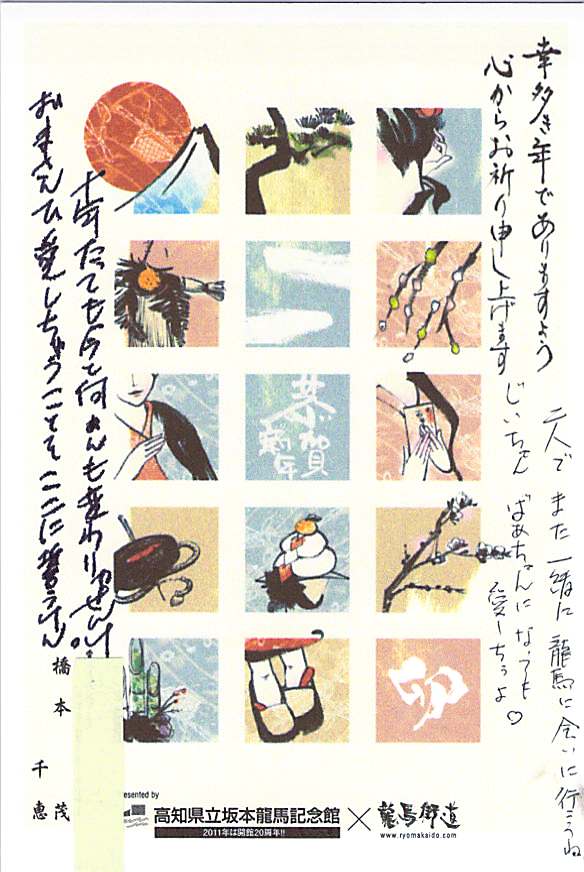 幸多き年でありますよう
心からお祈り申し上げます
二人でまた一緒に龍馬に会いに行こうね
じいちゃんばあちゃんになっても
愛しちょうよ♡
恭賀
新年
卯
十年たっても今と何ちゃんも変わりゃせんけ。
おまさんひ愛しちゅうことをここに誓うぜよ
橋本 茂
千恵
resented by
高知県立坂本龍馬記念館×龍馬街道
2011年は開館20周年!!
www.ryomakaido.com